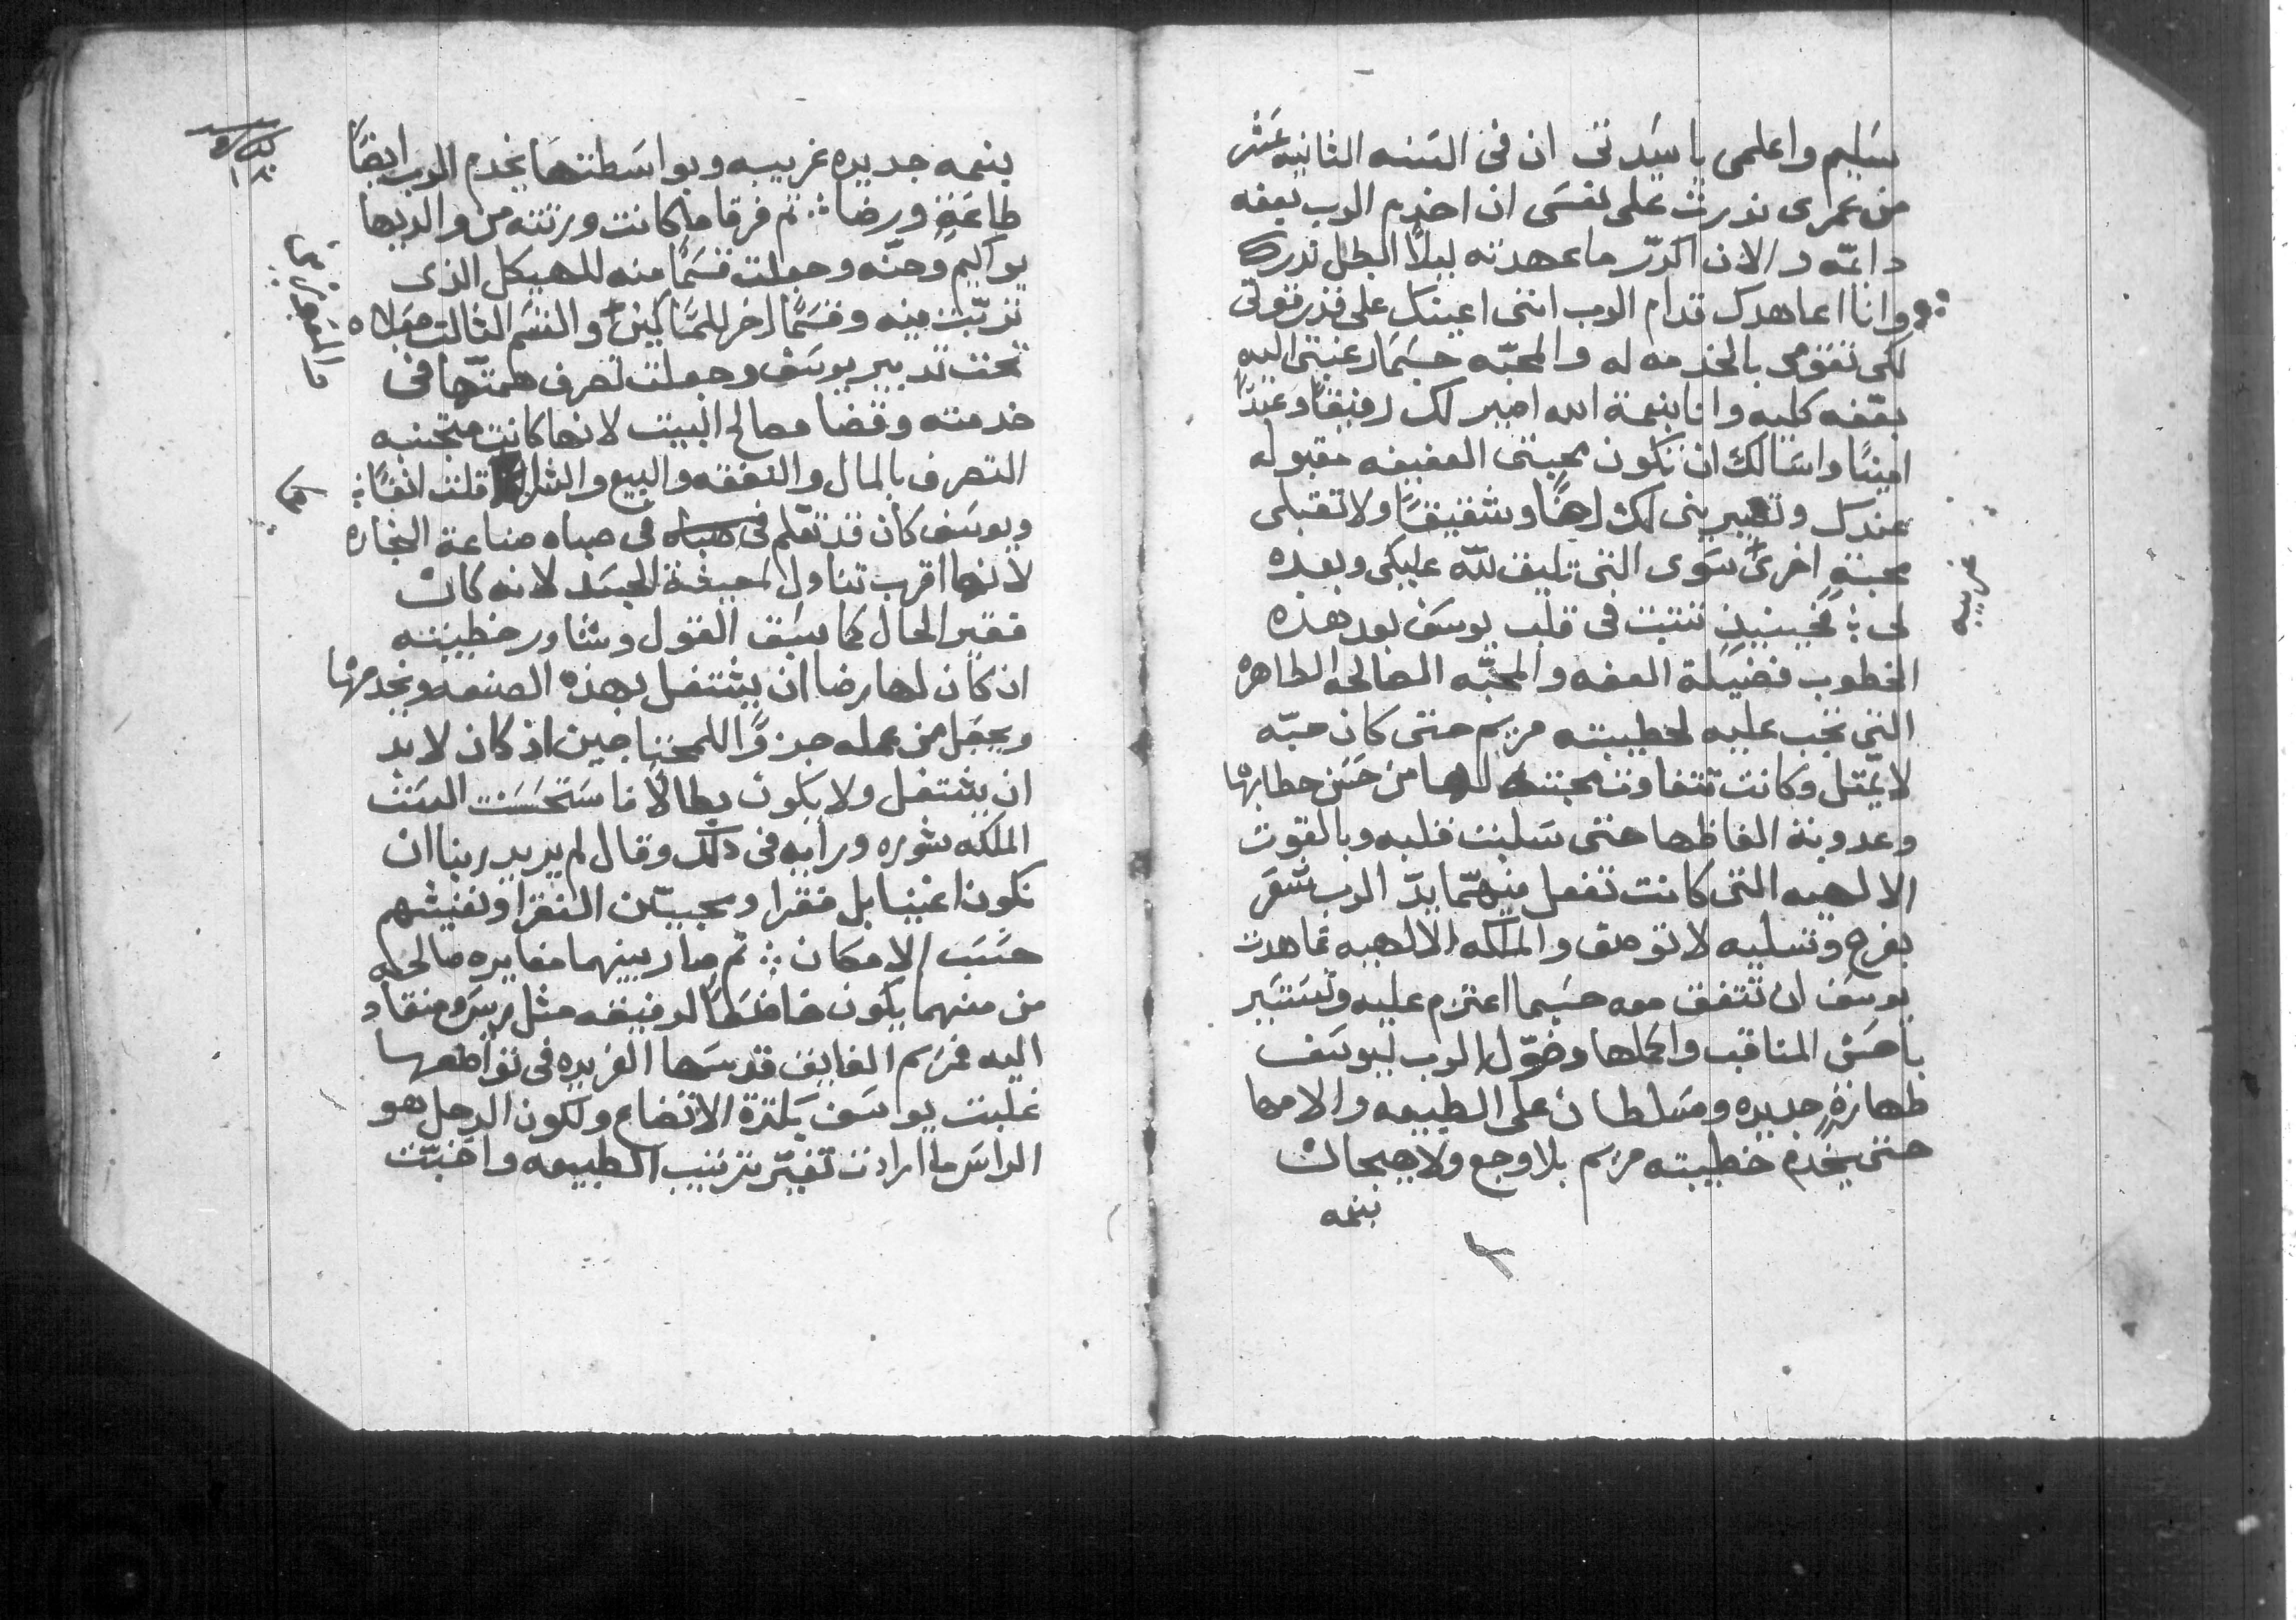 سليم واعلمى ياسيدتى ان فى السنه الثانيه عشر
من عمرى ندرت على نفسى ان اخدم الرب بعفه
دايمّه والان اكرّر ما عهدته ليلاً البطل ندرك
وانا اعاهدك قدام الرب اننى اعينك على قدر قوتى
لكى تقومى بالخدمه له والمحبّه حسَما رغبتى اليه
بعّفه كليه وانا بنعمة الله اصير لك رفيقاً وعبدًا
امينًا واسَالك ان تكون محبتى العفيفه مقبوله
عندك وتصيرينى لك اخًا وشفيقًا ولا تقبلى
محبةٍ اخرىً سَوى التى تليق للّه عليكى وبعده
لى ܀ فحينيدٍ تتبت فى قلب يوسَف بعد هذه
الخطوب فضيلة العفه والمحبّه الصالحه الطاهره
التى تجب عليه لخطيبته مريم حتى كان حبّه
لا يمّتل وكانت تتفاوت محبته لها من حسَن خطابها
وعدوبة الفاظها حتى سَلبت قلبه وبالقوت
الالهيه التى كانت تفعل منهمّا يدّ الرب شعَر
بفرح وتسليه لا توصف والملكه الالهيه تعاهدت
يوسَف ان تتفق معه حسَبما اعتزم عليه وتسَتسَير
باحسَن المناقب واكملها وخوّل الرب ليوسَف
طهارةٍ جديده ومسَلطان على الطبيعه والامها
حتى يخدم خطيبته مريم بلا وجع ولا هيجان
بنعمه
غريبه
بنعمه جديده غريبه وبواسَطتها يخدم الرب ايضًا
طاعَةٍ ورضا ܀ ثم فرقا ما كانت ورتته من والديها
يواكيم وحنّه وجعلت قسَمًا منه للهيكل الذى
تربّت فيه وقسَمًا اخر للمسَاكين والقسَم الثالت جعلاه
تحت تدبير يوسَف وجعلت تصرف همتّها فى
خدمته وقضا مصالح البيت لانها كانت متجنبه
التصرف بالمال والنفقه والبيع والشرا كما قلت انفًا ܀
ويوسَف كان قد تعّلم فى صباه فى صباه صناعة النجاره
لانها اقرب تناول لمعيشة الجسَد لانه كان
فقير الحال كما سَبق القول وشاور خطيبته
ان كان لها رضا ان يشتغل بهذه الصنعه ويخدمها
ويجعَل من عمله جزوًا للمحتاجين اذ كان لا بد
ان يشتغل ولا يكون بطالاً فاسَتحسَنت السَت
الملكه شوره ورايه فى دلك وقال لم يريد ربنا ان
نكون اغنيا بل فقرا ومحبيّن الفقرا ونعيشهم
حسَب الامكان ܀ ثم صار بينهما مغايره صالحه
من منهما يكون خاضعاً لرفيقه مثل ريسَ ومنقاد
اليه فمريم الفايق قدسَها الفريده فى تواضعها
غلبت يوسَف بكترة الاتضاع ولكون الرجل هو
الراسَ ما ارادت تغيّر ترتيب الطبيعه واحبّت